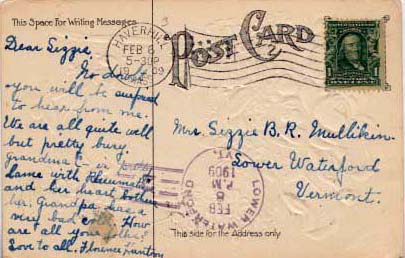 This Space For Writing Messages
HAVERHILL
FEB 6
5-30P
1909
POST CARD
1
Dear Lizzie,
No doubt
you will be surprised
to hear from me.
We are all quite well
but pretty busy.
Grandma is
lame with Rheumatism
and her heart bothers
her. Grandpa has a
very bad cold. How
are all your folks?
Love to all. Florence
Mrs Lizzie B. R. Mullikin.
Lower Waterford
Vermont.
LOWER WATERFORD
VT.
FEB
8
P.M.
1909
This side for the Address only